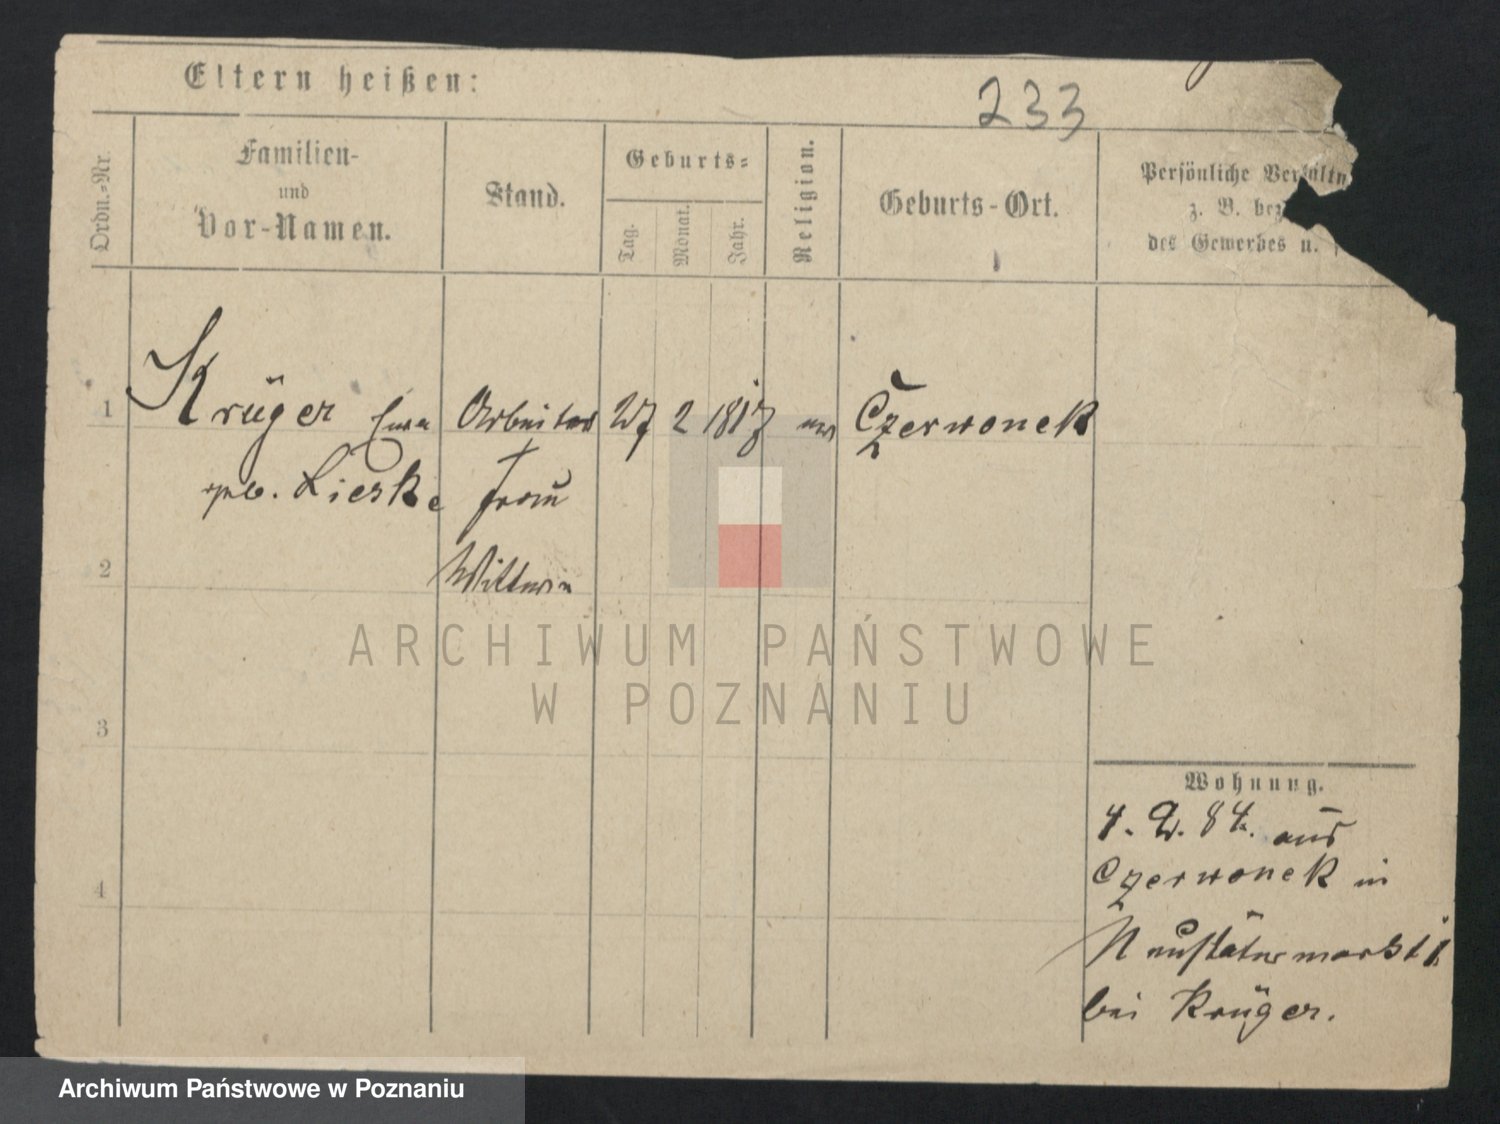 Eltern heißen:
233
Ordn.-Nr.
Familien-
und
Vor-Namen.
Stand.
Geburts-
Tag.
Monat.
Jahr.
Religion.
Geburts-Ort.
Persönliche Verhältn
z. B. bez
des Gewerbes u.
1
Krüger Eva Arbeiter 27 2 1817 ev Czerwonek
geb. Lieske Frau
2
Wittwe
ARCHIWUM PAŃSTWOWE
W POZNANIU
3
Wohnung.
4. 84. aus
Czerwonek in
4
Neustädtermarkt
bei Krüger.
Archiwum Państwowe w Poznaniu